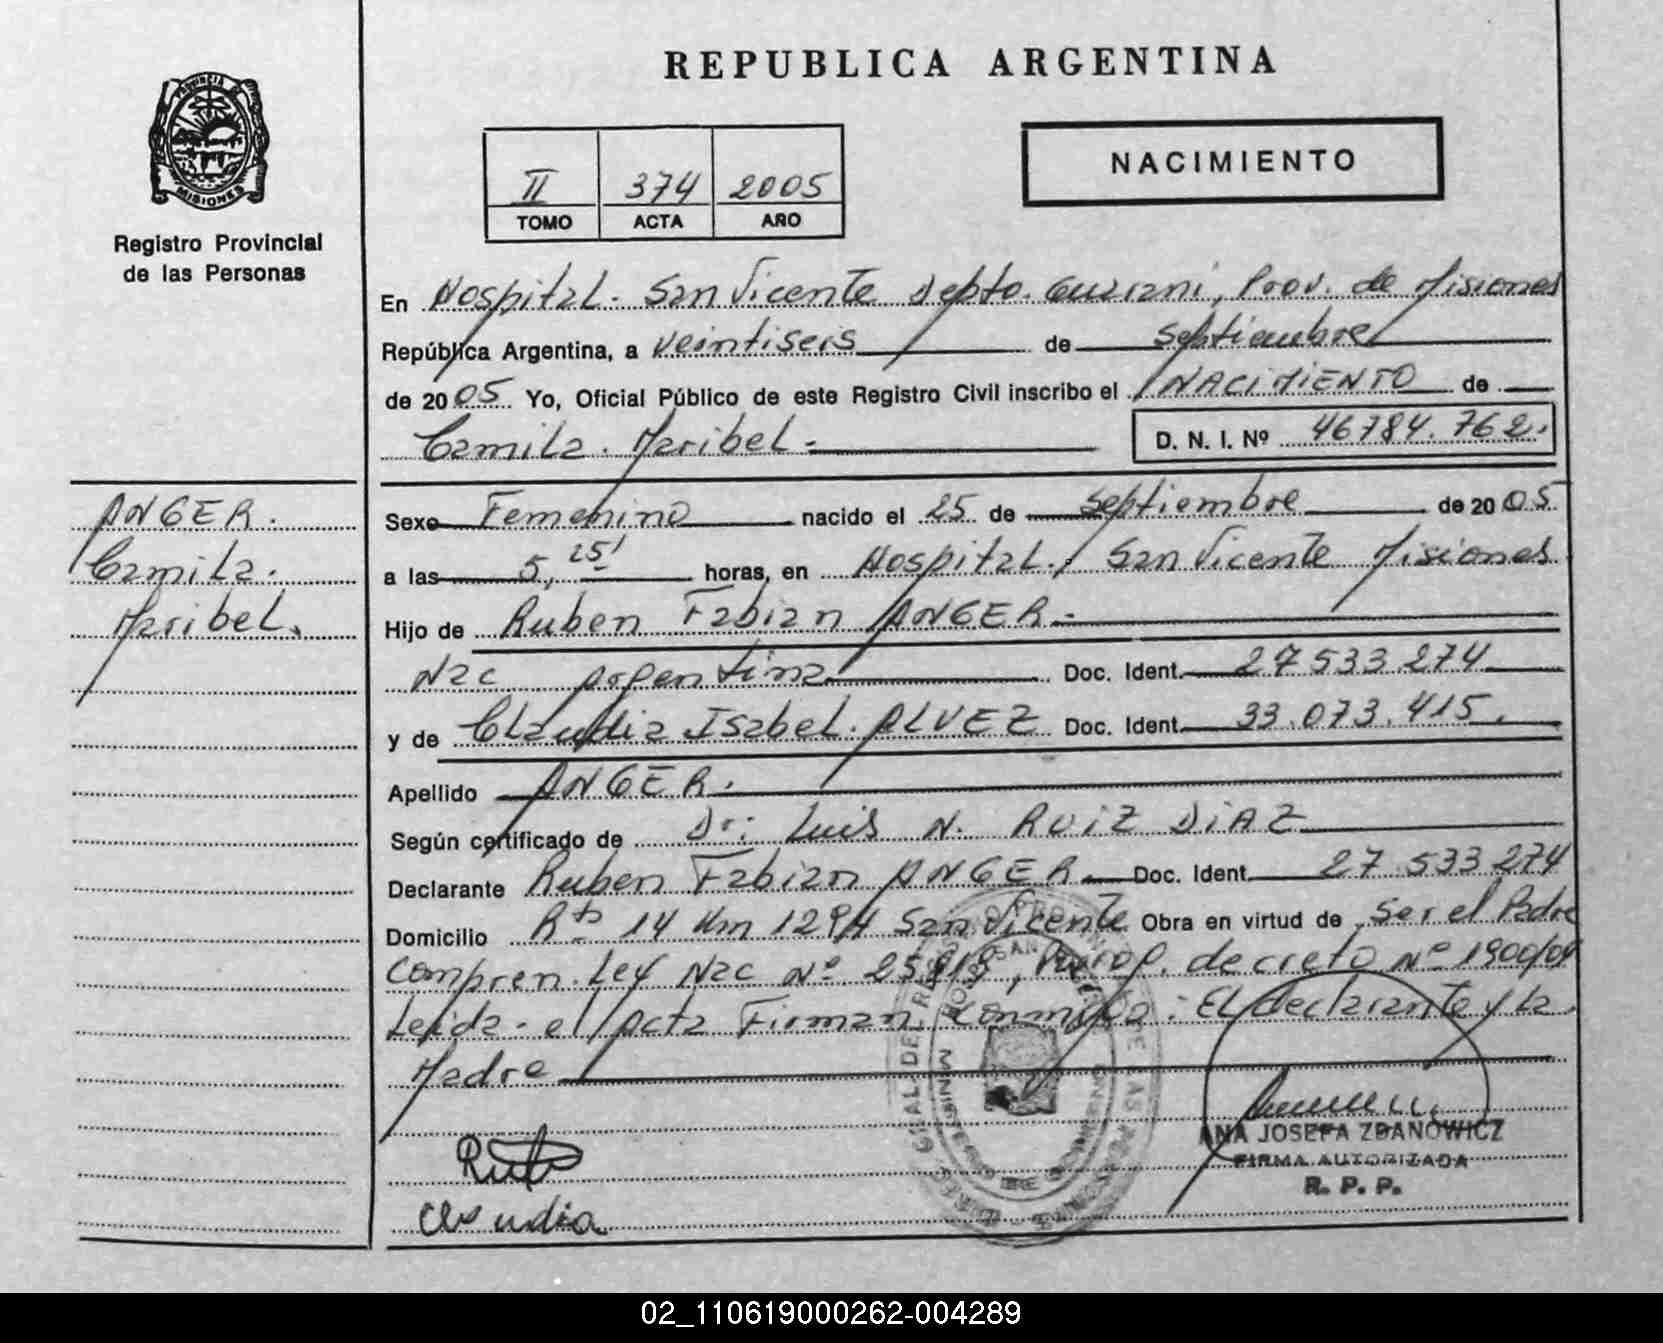 REPUBLICA ARGENTINA
PROVINCIA DE
MISIONES
Registro Provincial
de las Personas
II 374 2005
TOMO ACTA AÑO
NACIMIENTO
En Hospital. San Vicente Depto. Guarani, Prov. de Misiones
República Argentina, a veintiseis de septiembre
de 2005 Yo, Oficial Público de este Registro Civil inscribo el NACIMIENTO de
Camila. Maribel.
D. N. I. Nº 46784.762.
ANGER.
Camila.
Maribel.
Sexo Femenino nacido el 25 de septiembre de 2005
a las 5,25' horas, en Hospital. San Vicente Misiones
Hijo de Ruben Fabian ANGER.
Nac Argentina Doc. Ident. 27533274
y de Claudia Isabel. ALVEZ Doc. Ident. 33.073.415.
Apellido ANGER.
Según certificado de Dr: Luis N. RUIZ DIAZ
Declarante Ruben Fabian ANGER Doc. Ident. 27.533.274
Domicilio Rta 14 Km 1294 San Vicente Obra en virtud de Ser el Padre
Compren. Ley Nac Nº 25818, decreto Nº 1900/04
Leida el Acta Firman Conmigo: El declarante y la
Madre
Claudia
ANA JOSEFA ZDANOWICZ
FIRMA AUTORIZADA
R. P. P.
02_110619000262-004289